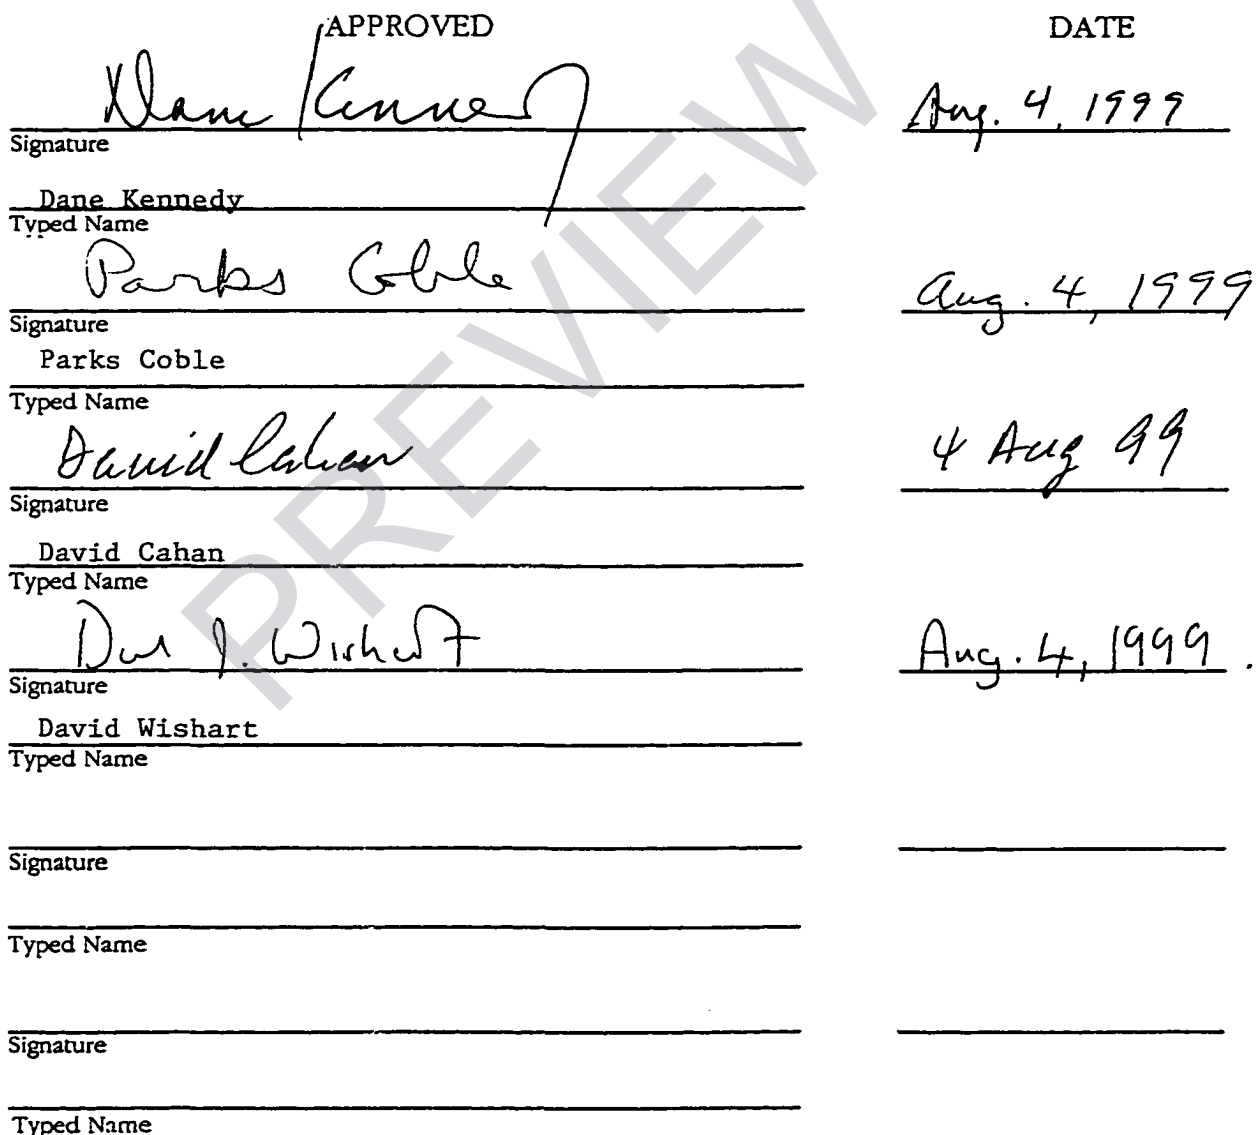 APPROVED DATE
Dane Kennedy Aug. 4, 1999
Signature
Dane Kennedy
Typed Name
Parks Coble Aug. 4, 1999
Signature
Parks Coble
Typed Name
David Cahan 4 Aug 99
Signature
David Cahan
Typed Name
David J. Wishart Aug. 4, 1999.
Signature
David Wishart
Typed Name
Signature
Typed Name
Signature
Typed Name
PREVIEW